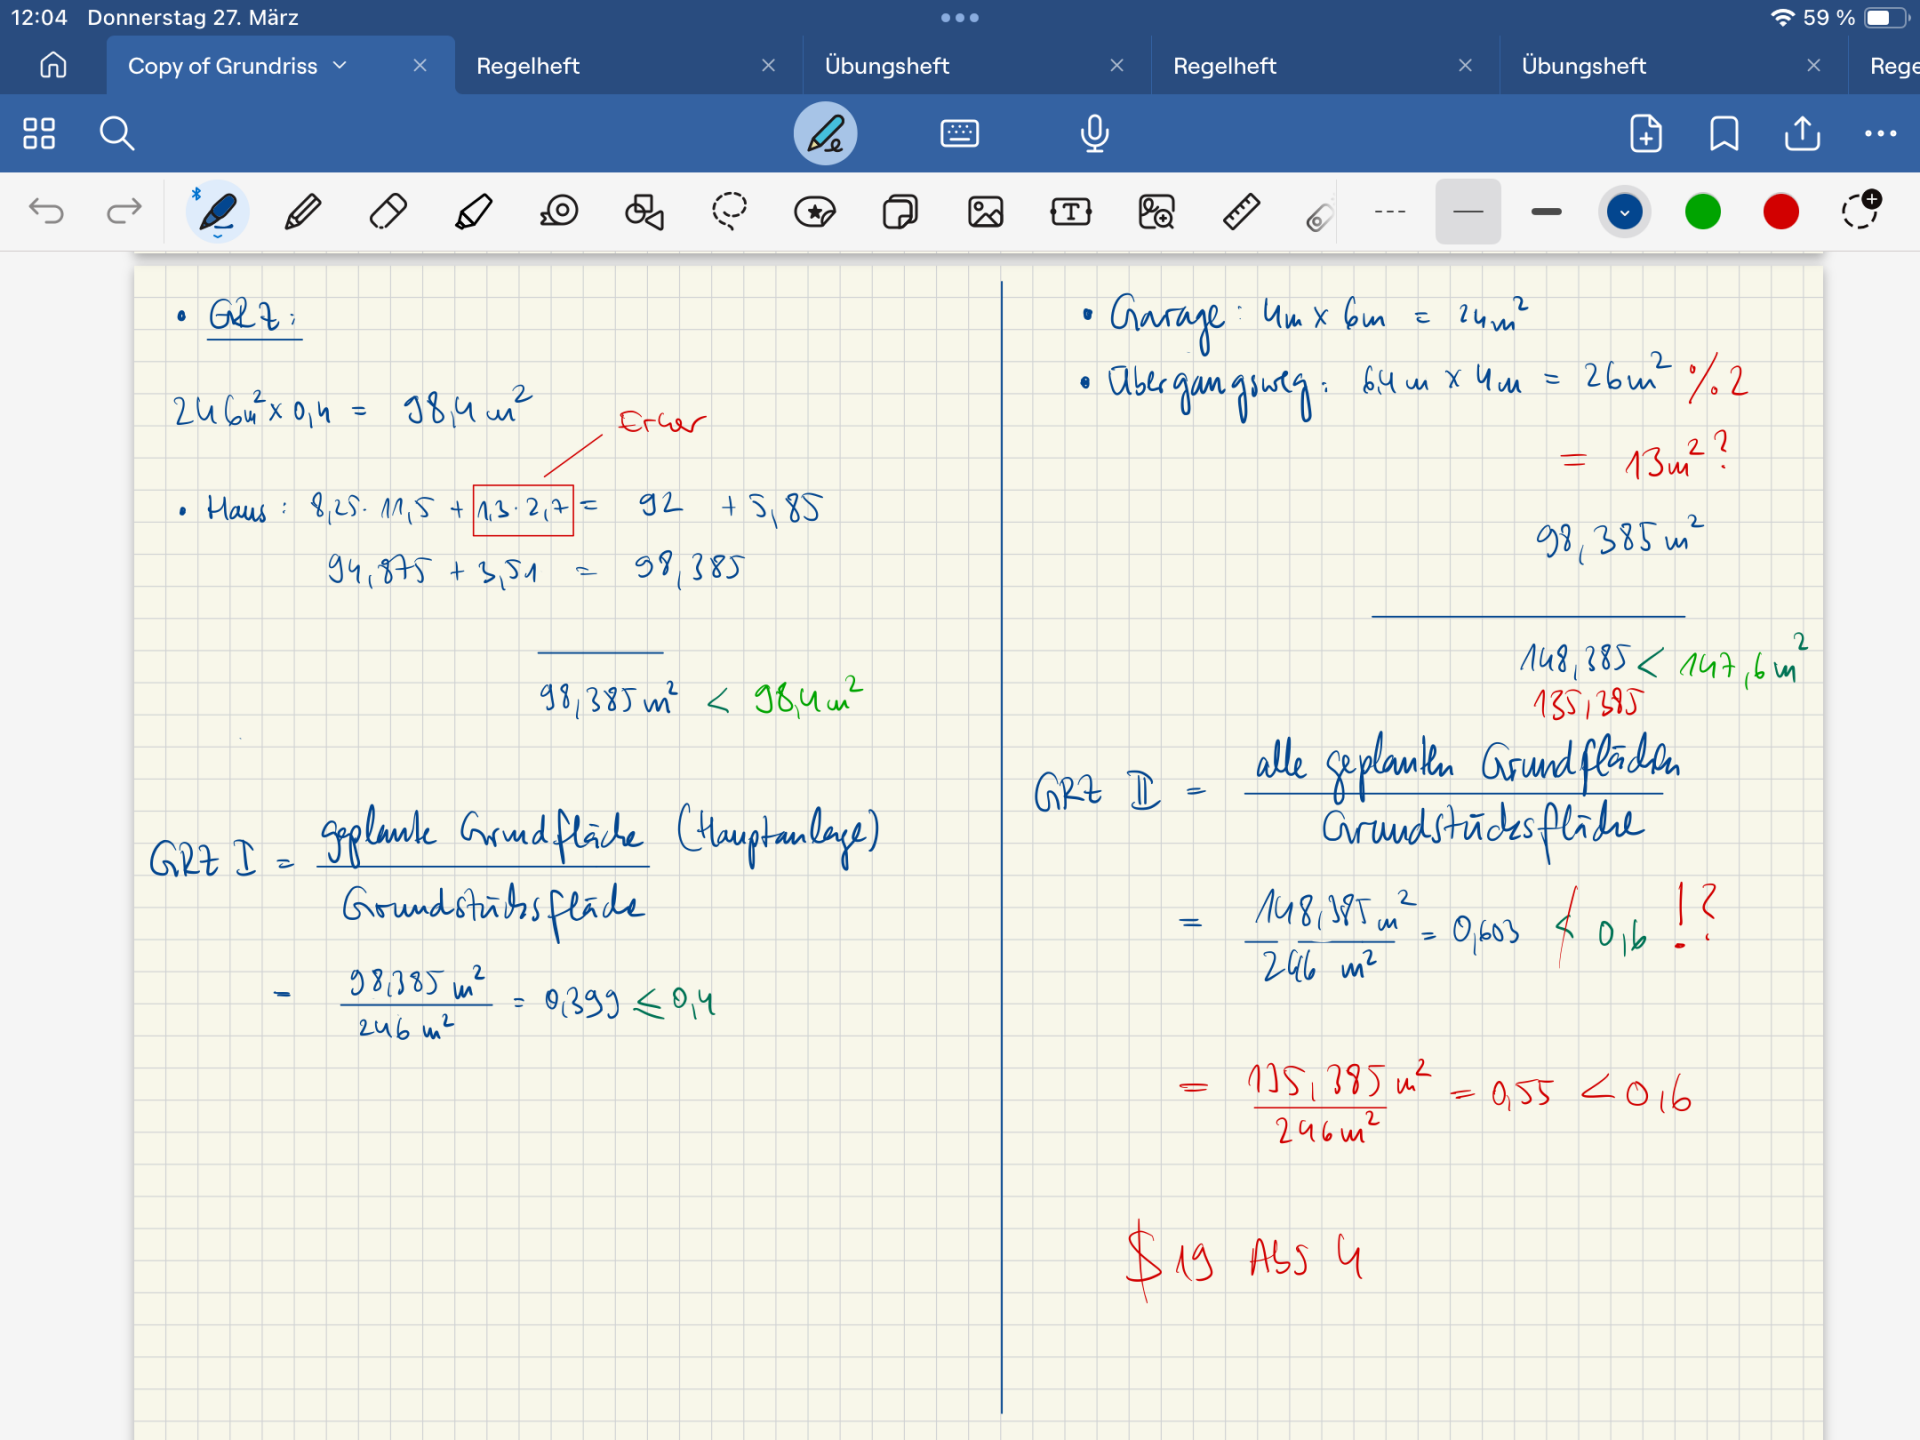 12:04 Donnerstag 27. März
59 %
Copy of Grundriss
Regelheft
Übungsheft
Regelheft
Übungsheft
Rege
• GRZ:
246m² x 0,4 = 98,4 m²
Erker
• Haus: 8,25 · 11,5 + 1,3 · 2,7 = 92 + 5,85
94,875 + 3,51 = 98,385
98,385 m² < 98,4 m²
GRZ I = geplante Grundfläche (Hauptanlage)
Grundstücksfläche
= 98,385 m² = 0,399 ≤ 0,4
246 m²
• Garage: 4m x 6m = 24m²
• Übergangsweg: 6,4 m x 4m = 26m² % 2
= 13m² ?
98,385 m²
148,385 < 147,6 m²
135,385
GRZ II = alle geplanten Grundflächen
Grundstücksfläche
= 148,385 m² = 0,603 < 0,6 !?
246 m²
= 135,385 m² = 0,55 < 0,6
246 m²
$ 19 Abs 4